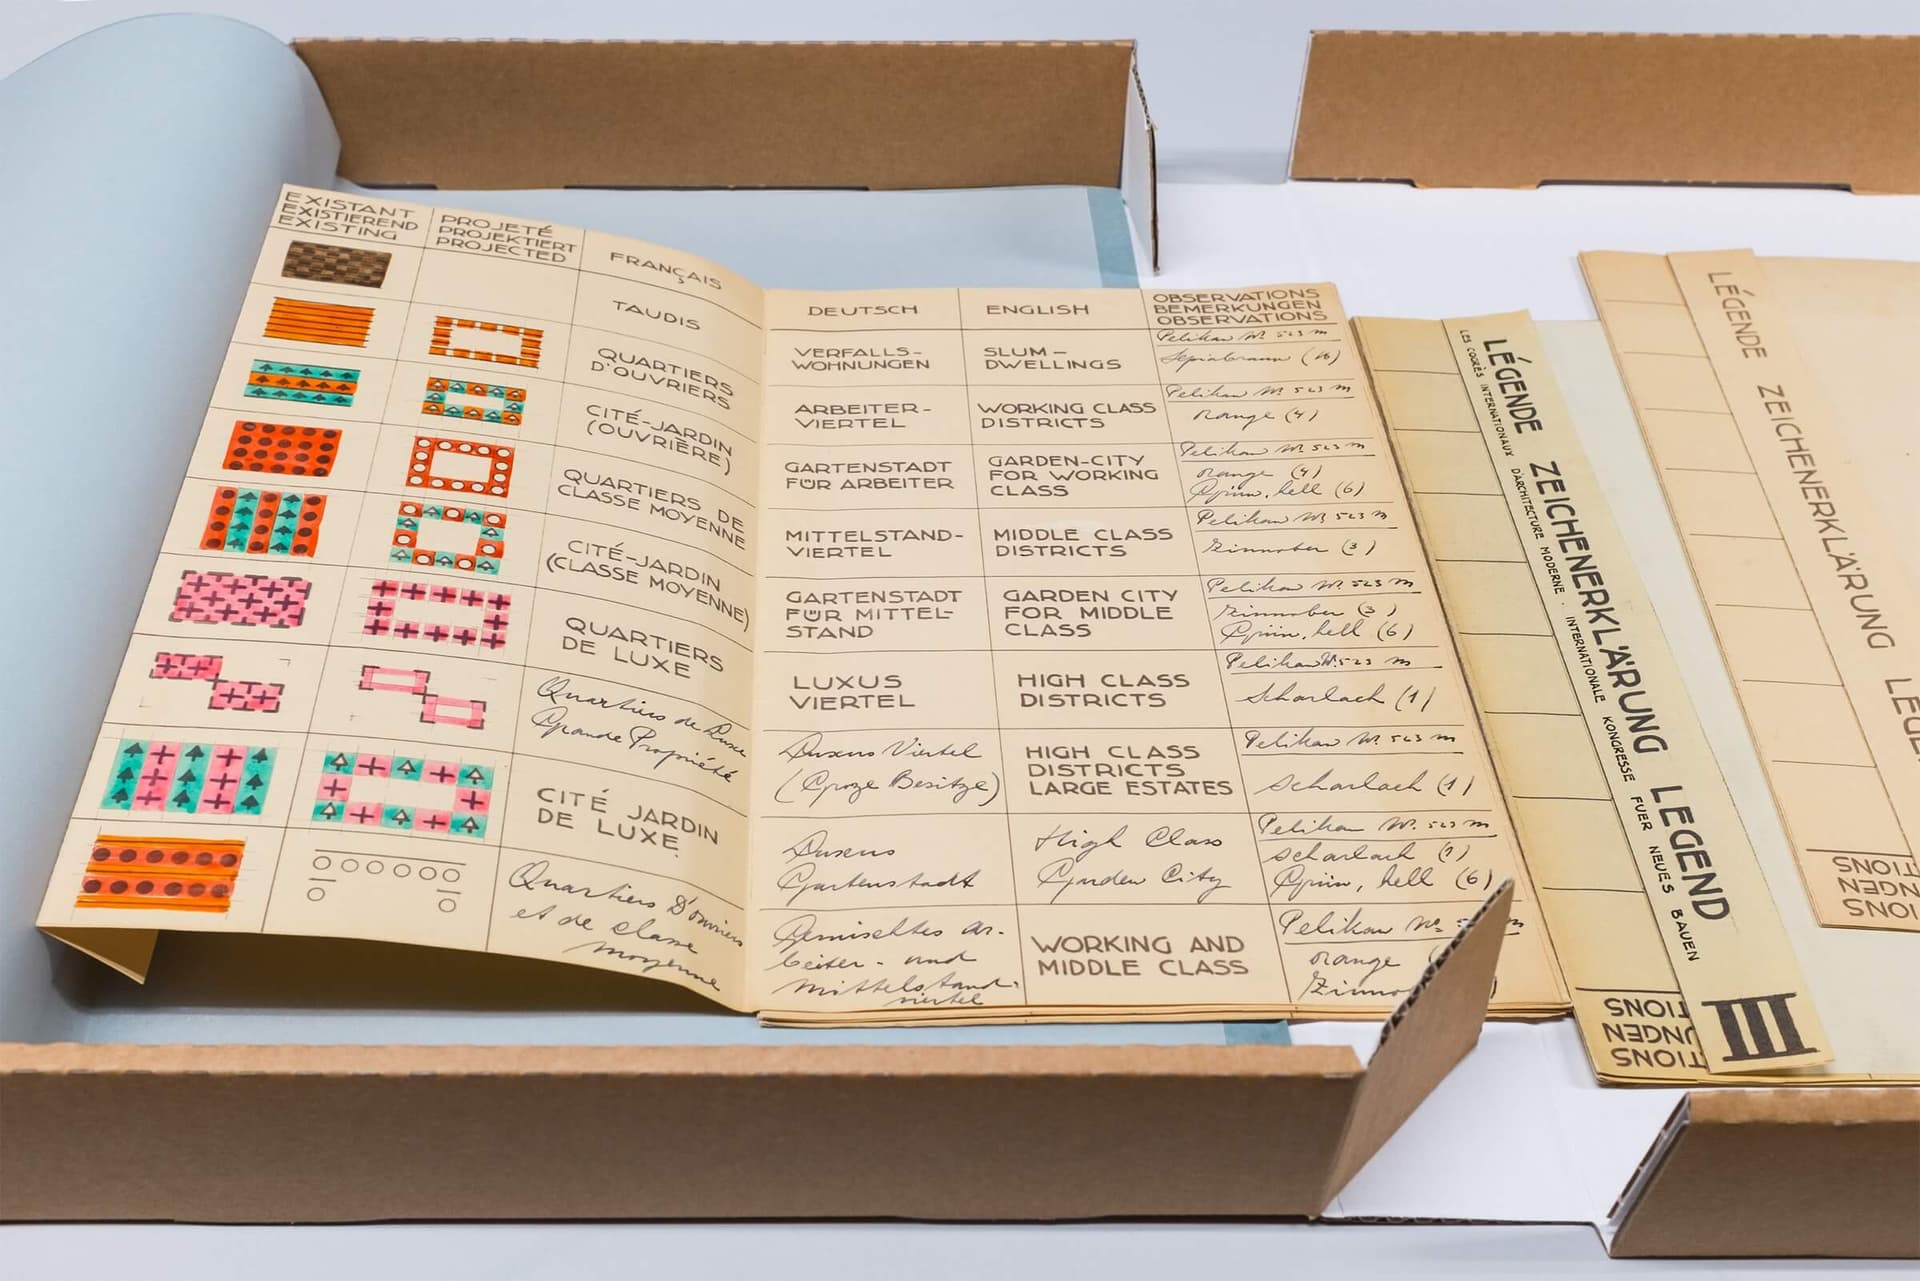 EXISTANT
EXISTIEREND
EXISTING
PROJETÉ
PROJEKTIERT
PROJECTED
FRANÇAIS
DEUTSCH
ENGLISH
OBSERVATIONS
BEMERKUNGEN
OBSERVATIONS
TAUDIS
VERFALLS-
WOHNUNGEN
SLUM-
DWELLINGS
Pelikan Nr. 523 m
Sepiabraun (16)
QUARTIERS
D'OUVRIERS
ARBEITER-
VIERTEL
WORKING CLASS
DISTRICTS
Pelikan Nr. 523 m
orange (4)
CITÉ-JARDIN
(OUVRIÈRE)
GARTENSTADT
FÜR ARBEITER
GARDEN-CITY
FOR WORKING
CLASS
Pelikan Nr 523 m
orange (4)
Grün, hell (6)
QUARTIERS DE
CLASSE MOYENNE
MITTELSTAND-
VIERTEL
MIDDLE CLASS
DISTRICTS
Pelikan Nr 523 m
Zinnober (3)
CITÉ-JARDIN
(CLASSE MOYENNE)
GARTENSTADT
FÜR MITTEL-
STAND
GARDEN CITY
FOR MIDDLE
CLASS
Pelikan Nr. 523 m
Zinnober (3)
Grün, hell (6)
QUARTIERS
DE LUXE
LUXUS
VIERTEL
HIGH CLASS
DISTRICTS
Pelikan Nr. 523 m
Scharlach (1)
Quartiers de Luxe
Grande Propriété
Luxus Viertel
(Groze Besitze)
HIGH CLASS
DISTRICTS
LARGE ESTATES
Pelikan Nr. 523 m
Scharlach (1)
CITÉ JARDIN
DE LUXE
Luxus
Gartenstadt
High Class
Garden City
Pelikan Nr. 523 m
Scharlach (1)
Grün, hell (6)
Quartiers D'ouvriers
et de classe
moyenne
Gemischtes Ar-
beiter- und
Mittelstand-
viertel
WORKING AND
MIDDLE CLASS
Pelikan Nr m
orange
Zinno
LÉGENDE ZEICHENERKLÄRUNG LEGEND
LES COGRÈS INTERNATIONAUX D'ARCHITECTURE MODERNE . INTERNATIONALE KONGRESSE FUER NEUES BAUEN
III
TIONS
UNGEN
TIONS
LÉGENDE ZEICHENERKLÄRUNG LEGE
TIONS
NGEN
IONS